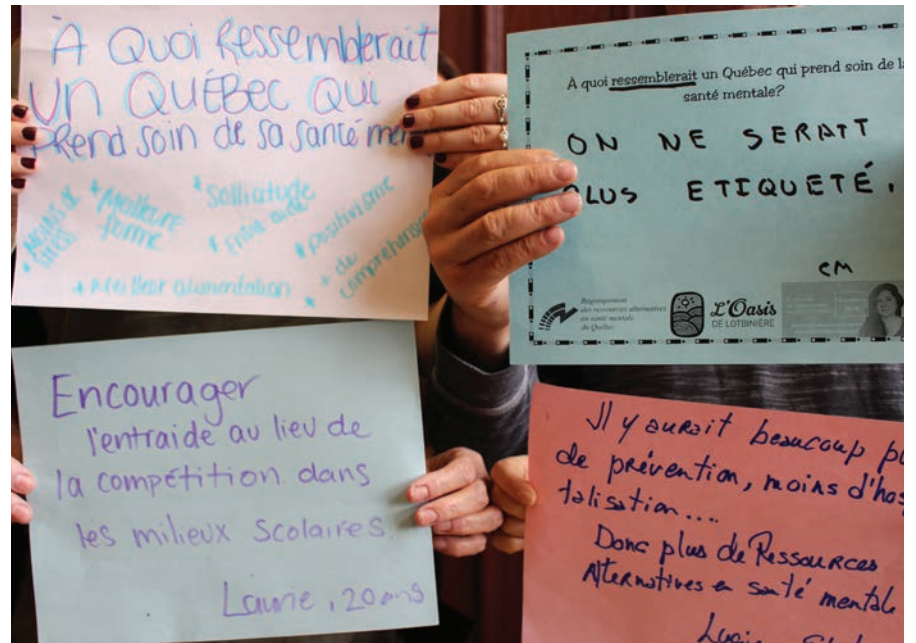 À Quoi Ressemblerait
UN QUÉBEC QUI
Prend soin de sa santé
* Moins de
stress
* Meilleure
forme
* Entre aide
* positivisme
* + de
compréhension
* Meilleur alimentation
À quoi ressemblerait un Québec qui prend soin de la
santé mentale?
ON NE SERAIT
PLUS ETIQUETÉ.
CM
Regroupement
des ressources alternatives
en santé mentale
du Québec
L'Oasis
DE LOTBINIÈRE
Encourager
l'entraide au lieu de
la compétition dans
les milieux scolaires
Laurie, 20 ans
Il y aurait beaucoup
de prévention, moins d'hos
talisation....
Donc plus de Ressources
Alternatives en santé mentale